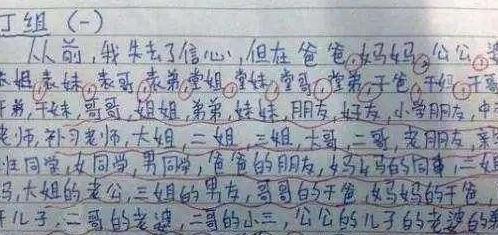 丁组 (一)
从前,我失去了信心,但在爸爸,妈妈,公公,婆
表姐,表妹,表哥,表弟,堂姐,堂妹,堂哥,堂弟,干爸,干妈,干哥
干弟,干妹,哥哥,姐姐,弟弟,妹妹,朋友,好友,小学朋友,中
老师,补习老师,大姐,二姐,三姐,大哥,二哥,老朋友,亲
班同学,女同学,男同学,爸爸的朋友,妈妈的同事,三姐
妈,大姐的老公,三姐的男友,哥哥的干爸,妈妈的干爸,
干儿子,二哥的老婆,二哥的小三,公公的儿子的老婆的